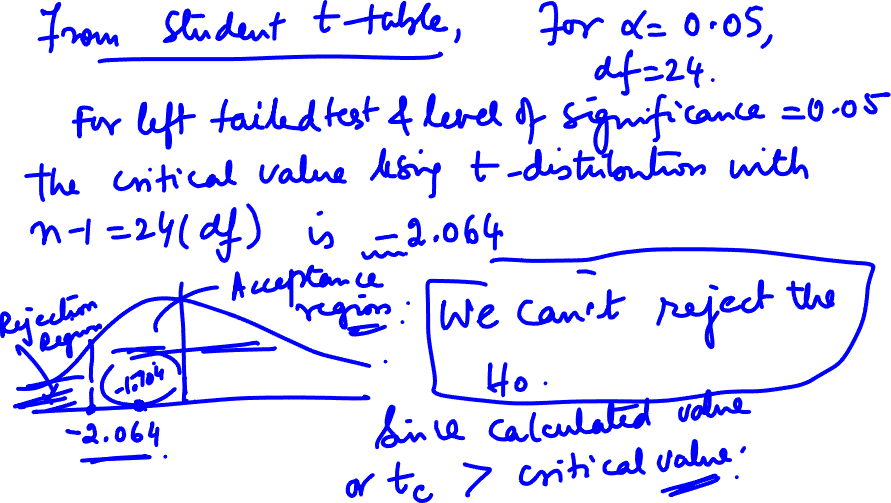 From Student t-table, For α = 0.05,
df = 24.
For left tailed test & level of significance = 0.05
the critical value using t-distribution with
n-1 = 24 (df) is -2.064
Rejection
Region
Acceptance
region.
-1.704
-2.064
We can't reject the
H0.
Since calculated value
or tc > critical value.